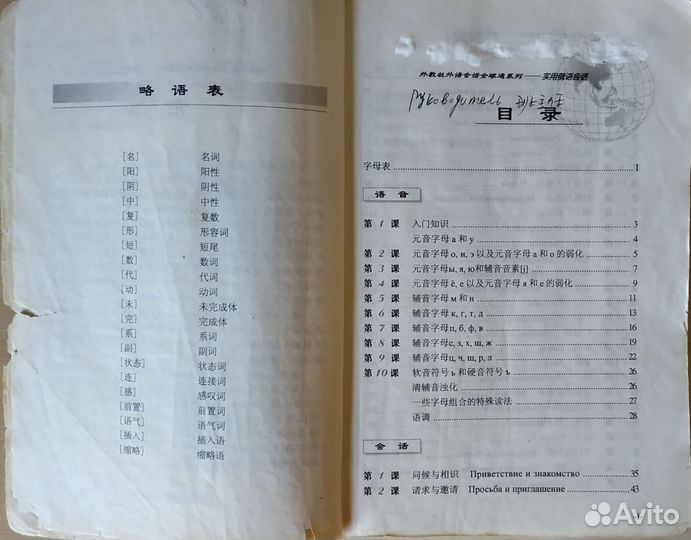 略 语 表
[名] 名词
[阳] 阳性
[阴] 阴性
[中] 中性
[复] 复数
[形] 形容词
[短] 短尾
[数] 数词
[代] 代词
[动] 动词
[未] 未完成体
[完] 完成体
[系] 系词
[副] 副词
[状态] 状态词
[连] 连接词
[感] 感叹词
[前置] 前置词
[语气] 语气词
[插入] 插入语
[缩略] 缩略语
外教社外语会话全球通系列——实用俄语会话
Руководитель 班主任
目 录
字母表 I
语 音
第 1 课 入门知识 3
元音字母 а 和 у 4
第 2 课 元音字母 о, и, э 以及元音字母 а 和 о 的弱化 5
第 3 课 元音字母ы, я, ю和辅音音素[j] 7
第 4 课 元音字母 ё, е 以及元音字母 я 和 е 的弱化 9
第 5 课 辅音字母 м 和 н 11
第 6 课 辅音字母 к, г, т, д 13
第 7 课 辅音字母п, б, ф, в 16
第 8 课 辅音字母с, з, х, ш, ж 19
第 9 课 辅音字母ц, ч, щ, р, л 22
第 10 课 软音符号 ь 和硬音符号 ъ 26
清辅音浊化 26
一些字母组合的特殊读法 27
语调 28
会 话
第 1 课 问候与相识 Приветствие и знакомство 35
第 2 课 请求与邀请 Просьба и приглашение 43
Avito